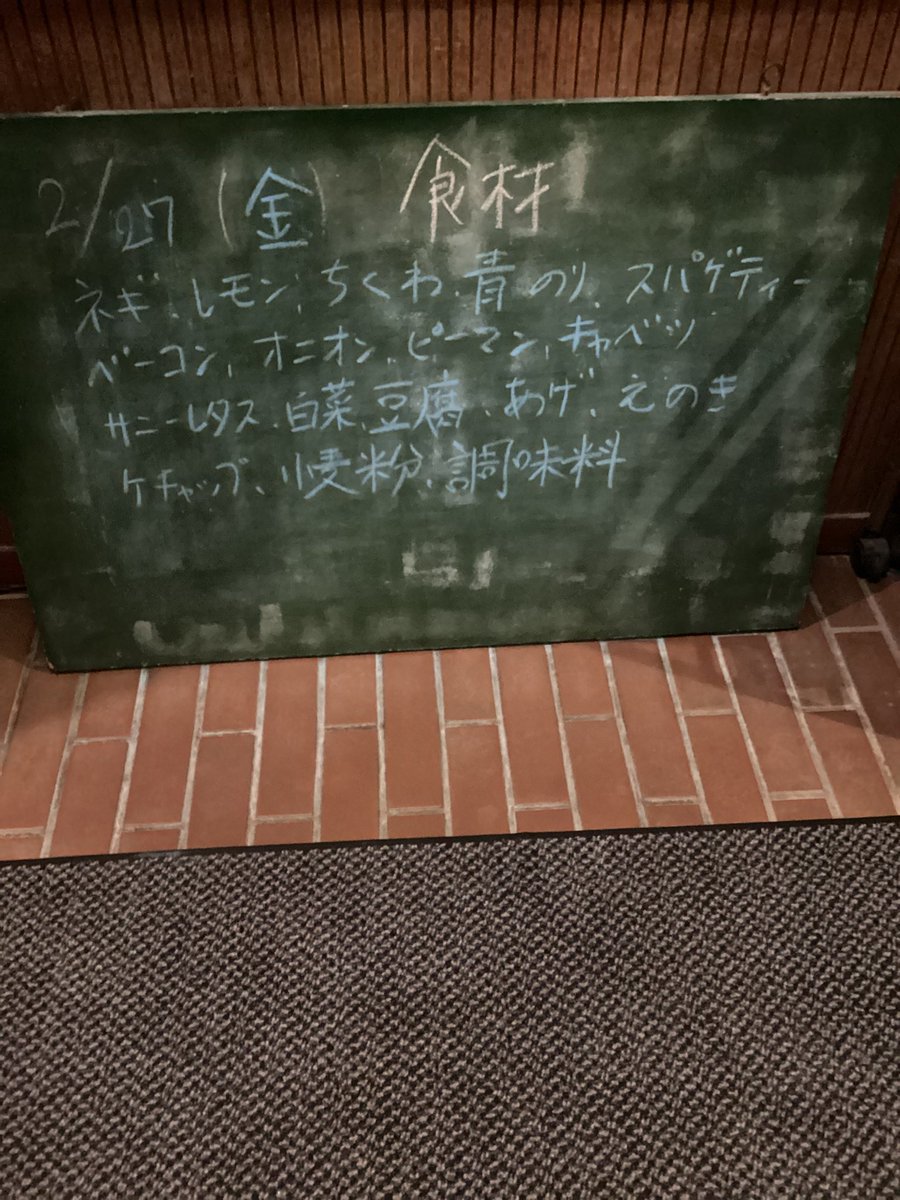 2/27 (金) 食材
ネギ、レモン、ちくわ、青のり、スパゲティー
ベーコン、オニオン、ピーマン、キャベツ
サニーレタス、白菜、豆腐、あげ、えのき
ケチャップ、小麦粉、調味料